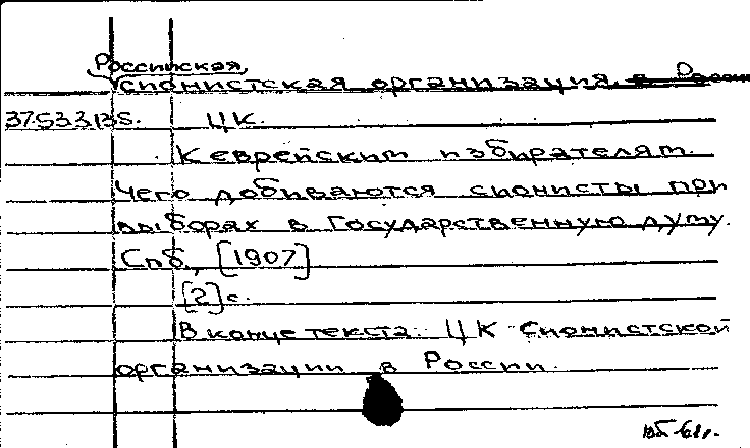 Российская,
сионистская организация, в Росси
37.53.3.135. ЦК.
К еврейским избирателям.
Чего добиваются сионисты при
выборах в Государственную думу.
Спб., [1907]
[2] с.
В конце текста: ЦК Сионистской
организации в России.